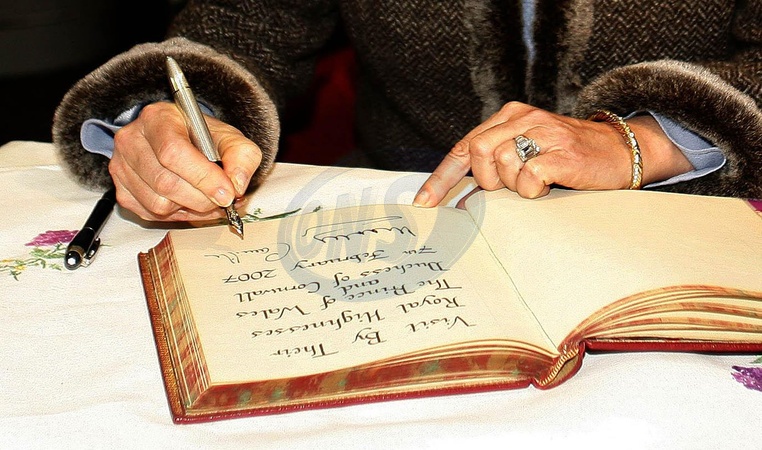 Visit By Their
Royal Highnesses
The Prince of Wales
and
Duchess of Cornwall
7th February 2007